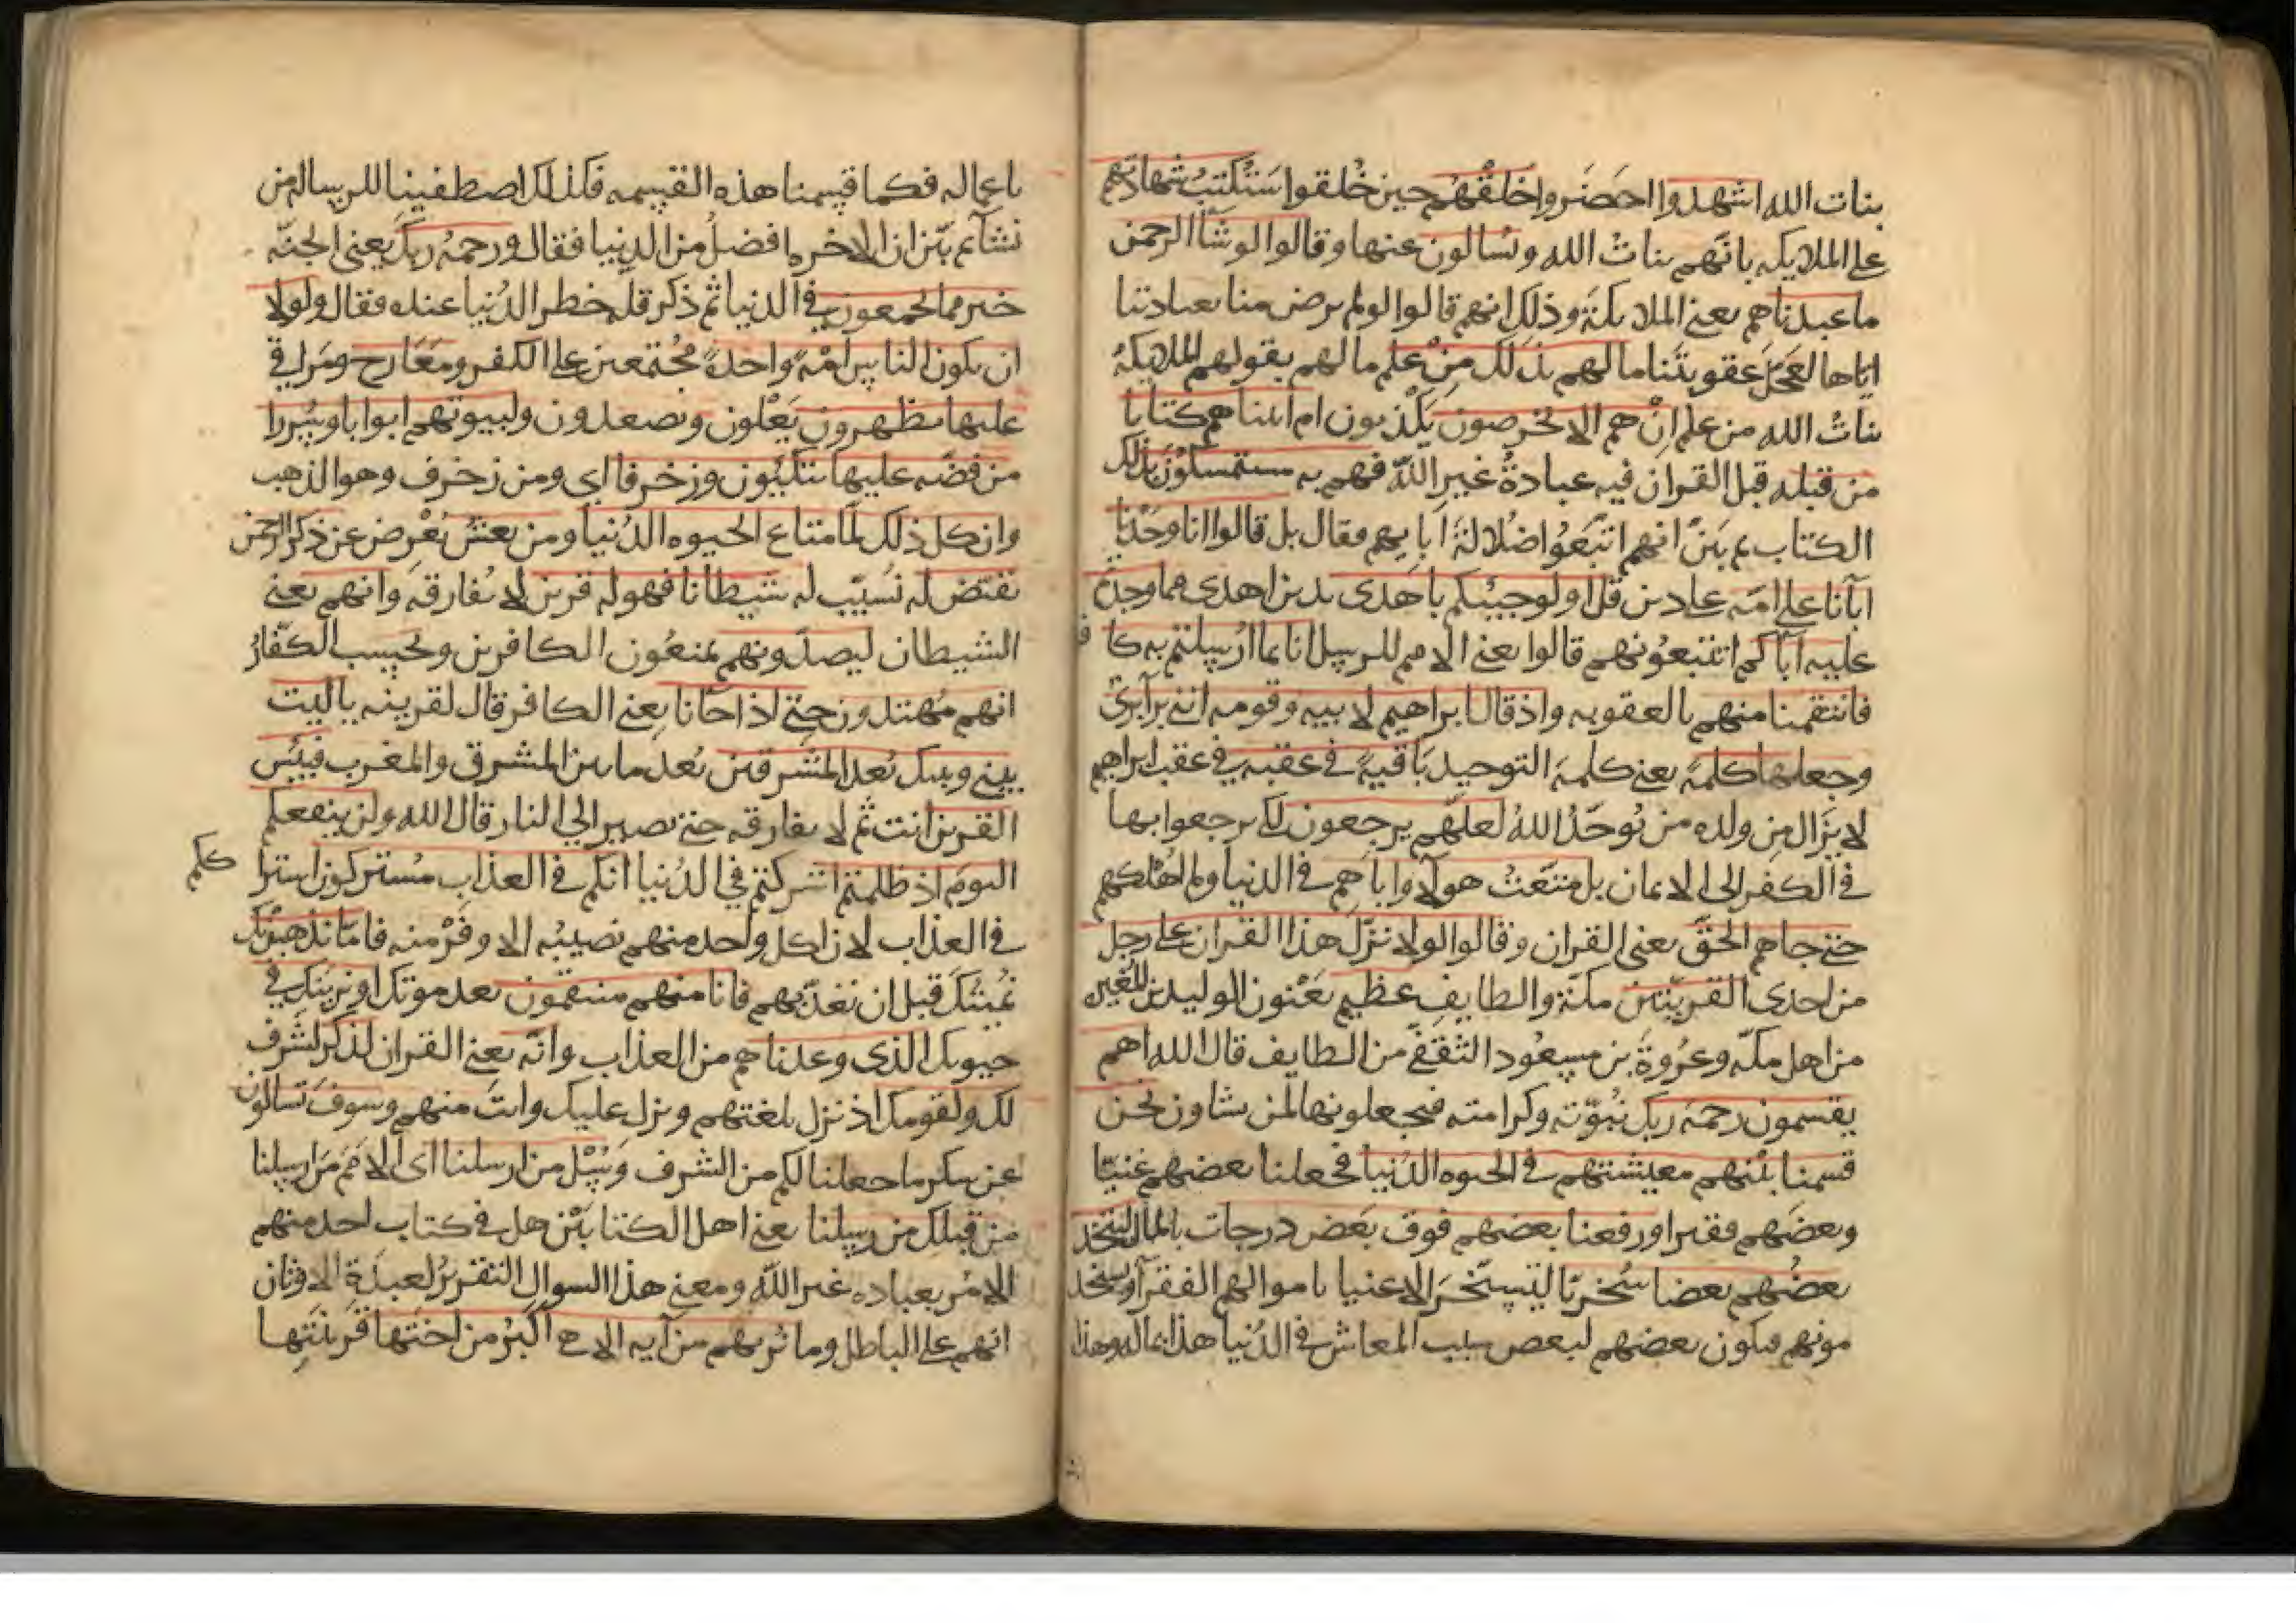 بنات الله اشهدوا احضروا خلقهم حين خلقوا ستكتب شهادتهم
على الملايكه بانهم بنات الله ويسالون عنها وقالوا لو شا الرحمن
ما عبدناهم يعني الملايكة وذلك انهم قالوا لو لم يرض منا بعبادتنا
اياها لعجل عقوبتنا ما لهم بذلك من علم ما لهم بقولهم الملايكة
بنات الله من علم ان هم الا يخرصون يكذبون ام اتيناهم كتابا
من قبله قبل القران فيه عبادة غير الله فهم به مستمسكون بذلك
الكتاب ثم بين انهم اتبعوا ضلالة ابايهم فقال بل قالوا انا وجدنا
ابانا على امه على دين قل اولو جيتكم باهدى بدين اهدى مما وجدتم
عليه اباكم اتتبعونهم قالوا يعني الامم للرسل انا بما ارسلتم به كا فر
فانتقمنا منهم بالعقوبه واذ قال ابراهيم لابيه وقومه انني برآ بري
وجعلها كلمة يعني كلمة التوحيد باقية في عقبه في عقب ابراهيم
لا يزال من ولده من يوحد الله لعلهم يرجعون لكي يرجعوا بها
في الكفر الى الايمان بل متعت هولا واباهم في الدنيا ولم اهلكهم
حتى جاهم الحق يعني القران وقالوا لولا نزل هذا القران على رجل
من احدى القريتين مكة والطايف عظيم يعنون الوليد بن المغيرة
من اهل مكه وعروة بن مسعود الثقفي من الطايف قال الله اهم
يقسمون رحمة ربك نبوته وكرامته فيجعلونها لمن يشاون نحن
قسمنا بينهم معيشتهم في الحيوه الدنيا فجعلنا بعضهم غنيا
وبعضهم فقيرا ورفعنا بعضهم فوق بعض درجات بالمال ليتخذ
بعضهم بعضا سخريا ليستسخر الاغنيا باموالهم الفقرآ
فيكون بعضهم لبعض سبب المعاش في الدنيا هذا بماله وهذا
باعماله فكما قسمنا هذه القسمه فكذلك اصطفينا للرساله من
نشآ ثم بين ان الاخره افضل من الدنيا فقال ورحمة ربك يعني الجنه
خير مما يجمعون في الدنيا ثم ذكر قله خطر الدنيا عنده فقال ولولا
ان يكون الناس امة واحدة مجتمعين على الكفر ومعارج ومراقي
عليها يظهرون يعلون ويصعدون ولبيوتهم ابوابا وسررا
من فضه عليها يتكيون وزخرفا اي ومن زخرف وهو الذهب
وان كل ذلك لما متاع الحيوه الدنيا ومن يعش يعرض عن ذكر الرحمن
نقيض له نسبب له شيطانا فهو له قرين لا يفارقه وانهم يعني
الشيطان ليصدونهم يمنعون الكافرين ويحسب الكفار
انهم مهتدون حتى اذا جانا يعني الكافر قال لقرينه يا ليت
بيني وبينك بعد المشرقين بعد ما بين المشرق والمغرب فبيس
القرين انت ثم لا يفارقه حتى يصير الى النار قال الله ولن ينفعكم
اليوم اذ ظلمتم اشركتم في الدنيا انكم في العذاب مشتركون اشترا ككم
في العذاب لان لكل واحد منهم نصيبه الاوفر منه فاما نذهبن بك
نميتنك قبل ان نعذبهم فانا منهم منتقمون بعد موتك او نرينك في
حيوتك الذي وعدناهم من العذاب وانه يعني القران لذكر لشرف
لك ولقومك اذ نزل بلغتهم ونزل عليك وانت منهم وسوف تسالون
عن شكر ما جعلنا لكم من الشرف وسل من ارسلنا اي الامم من ارسلنا
من قبلك من رسلنا يعني اهل الكتابين هل في كتاب احد منهم
الامر بعباده غير الله ومعنى هذا السوال التقرير لعبدة الاوثان
انهم على الباطل وما نريهم من آيه الا هي اكبر من اختها قرينتها